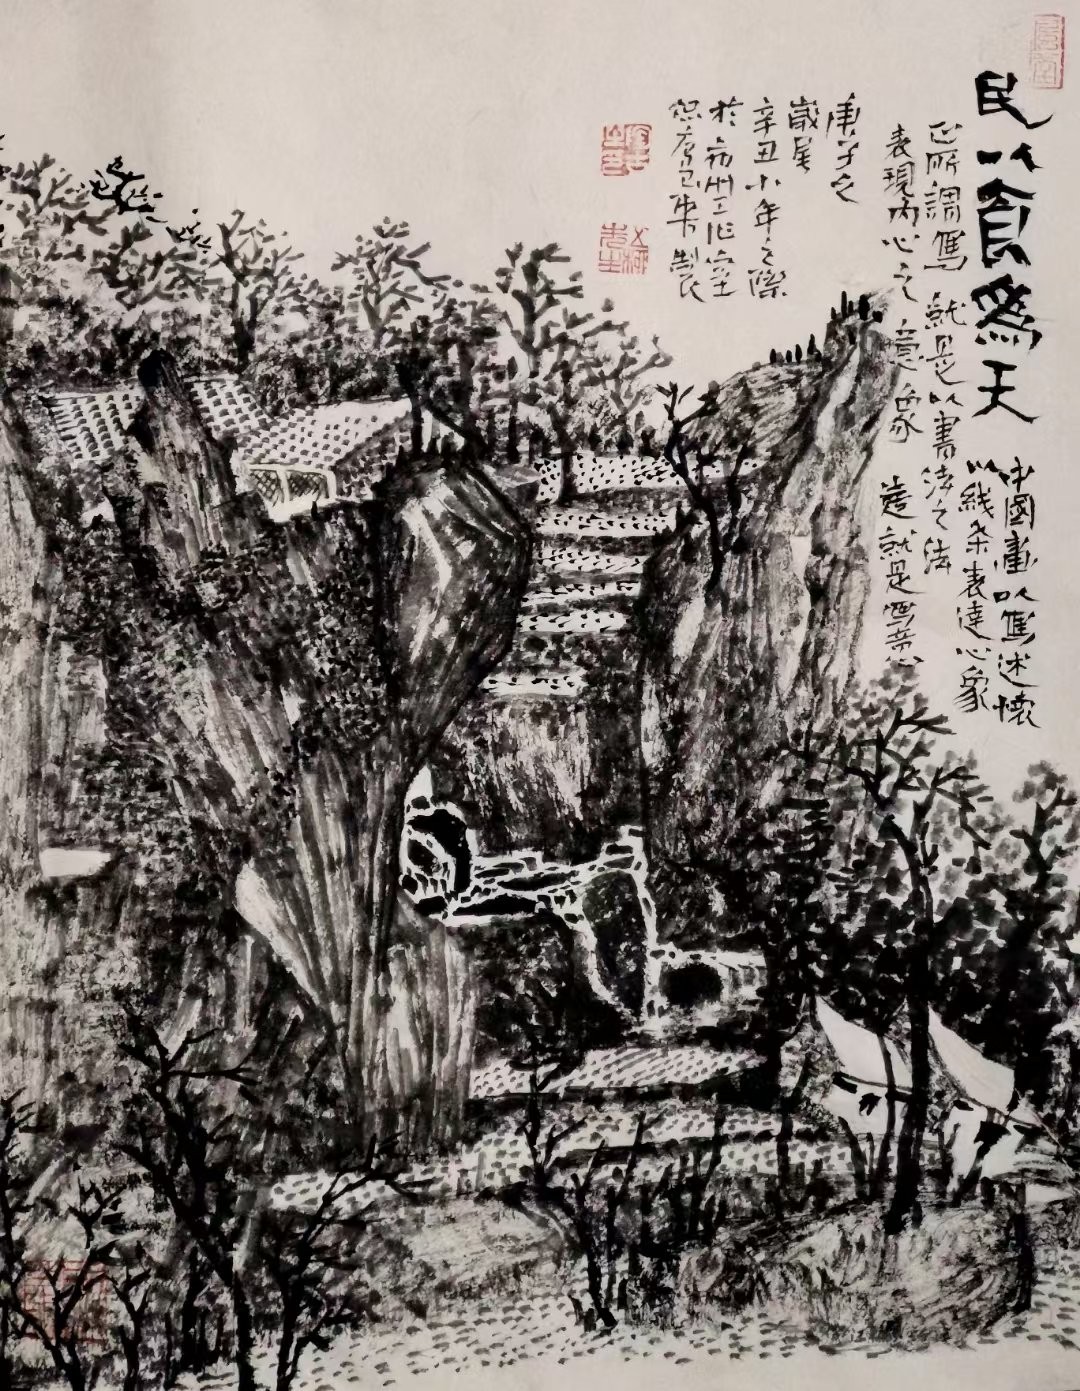 民以食為天
中國畫以寫述懷
以线条表達心象
正所謂寫 就是以書法之法
表現内心之 意象 這就是写意
庚子之
歲尾
辛丑小年之際
於 工作室
製